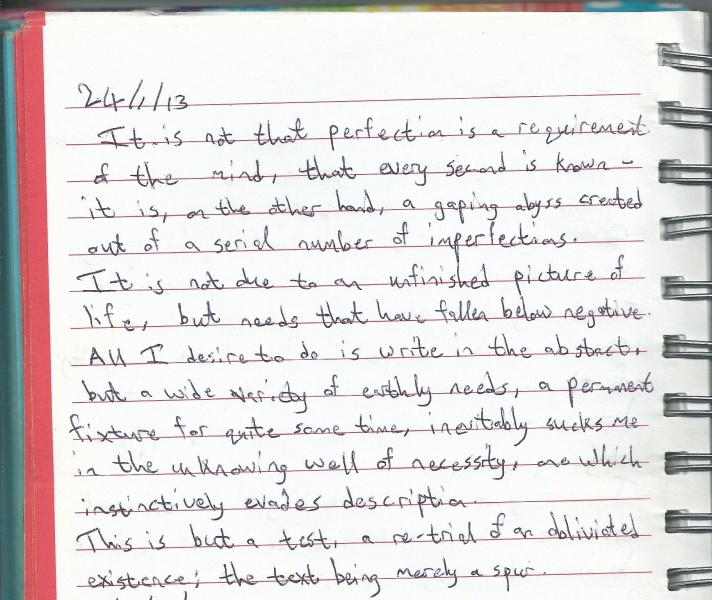 24/1/13
It is not that perfection is a requirement
of the mind, that every second is known -
it is, on the other hand, a gaping abyss created
out of a serial number of imperfections.
It is not due to an unfinished picture of
life, but needs that have fallen below negative.
All I desire to do is write in the abstract,
but a wide variety of earthly needs, a permanent
fixture for quite some time, inevitably sucks me
in the unknowing well of necessity, one which
instinctively evades description.
This is but a test, a re-trial of an obliviated
existence; the text being merely a spur.